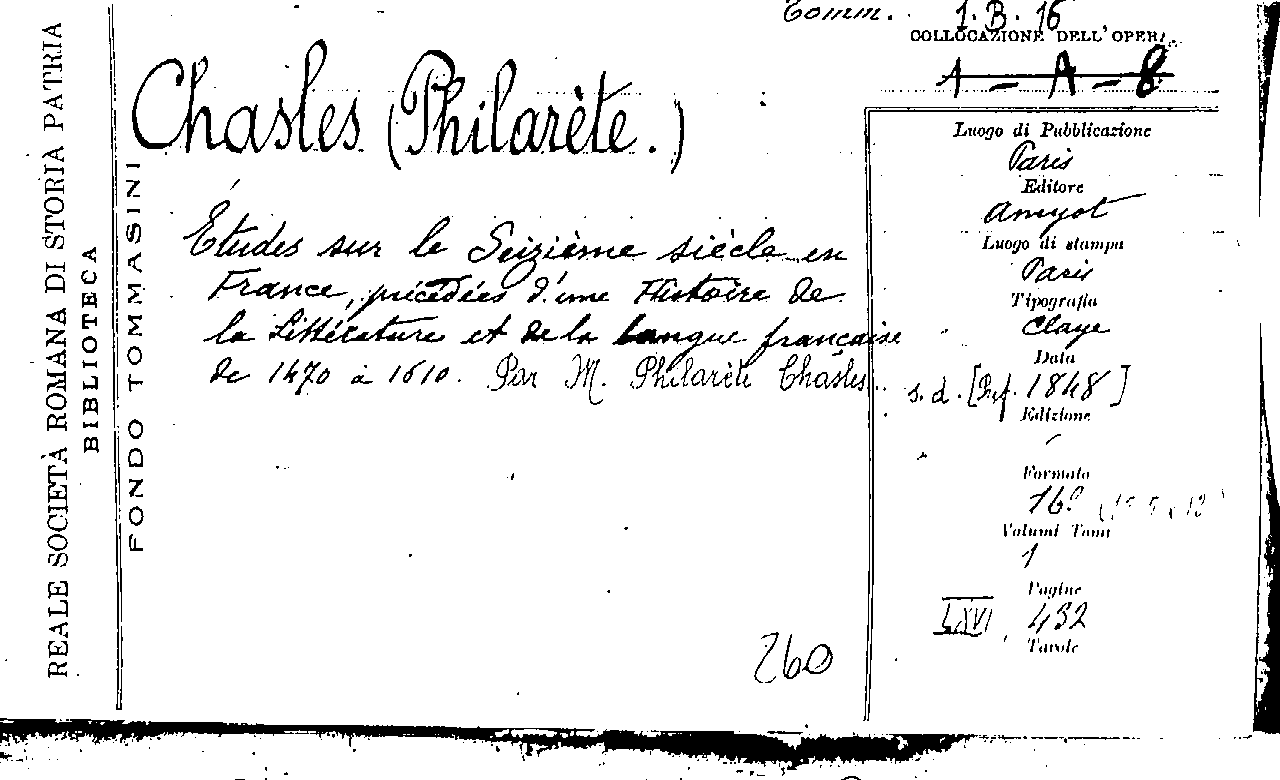 REALE SOCIETÀ ROMANA DI STORIA PATRIA
BIBLIOTECA
FONDO TOMMASINI
Tomm. 1.B.16
COLLOCAZIONE DELL'OPERA
1-A-8
Chasles (Philarète.)
Études sur le Seizième siècle en
France, précédées d'une Histoire de
la Littérature et de la langue française
de 1470 à 1610. Par M. Philarète Chasles.
260
Luogo di Pubblicazione
Paris
Editore
Amyot
Luogo di stampa
Paris
Tipografia
Claye
Data
s.d. [Pref. 1848]
Edizione
Formato
16º
Volumi Tomi
1
Pagine
LXVI, 432
Tavole